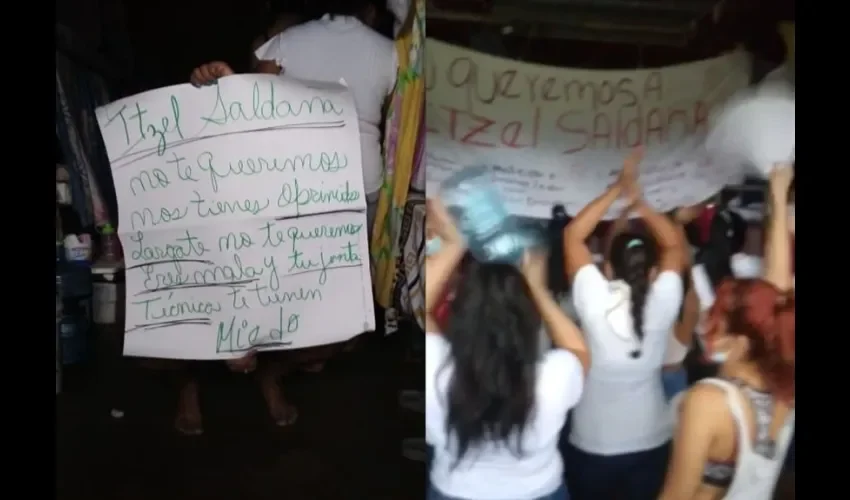 Itzel Saldana
no te queremos
nos tienes oprimidas
Largate no te queremos
Eres mala y tu junta
Técnica te tienen
Miedo
queremos A
Itzel SALDAÑA